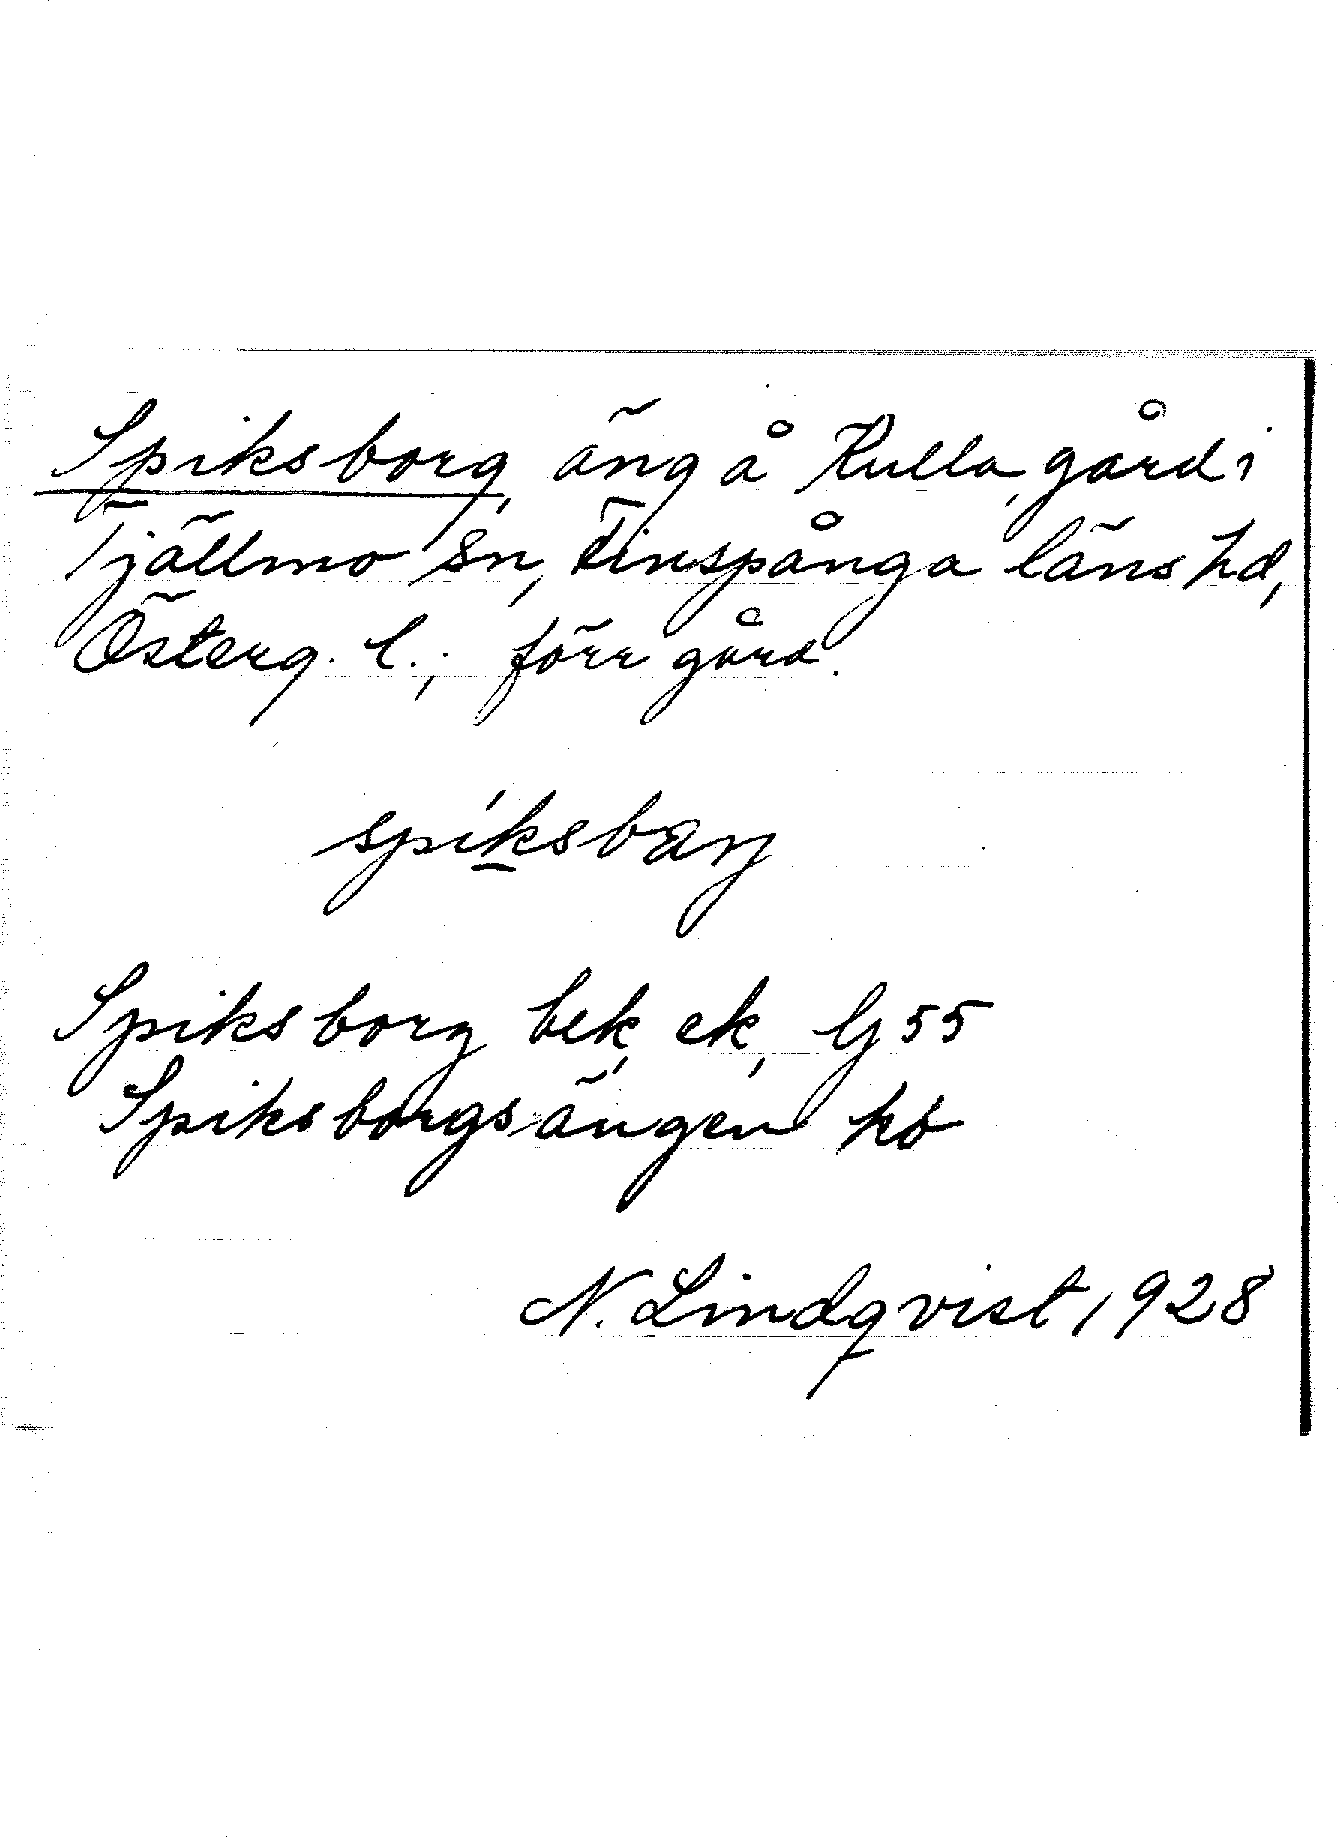 Spiksborg, äng å Kulla, gård i
Tjällmo sn, Finspånga läns hd,
Österg. l.; förr gård.
spíksbarj
Spiksborg bek, ek, Gj 55
Spiksborgsängen hb
N. Lindqvist, 1928